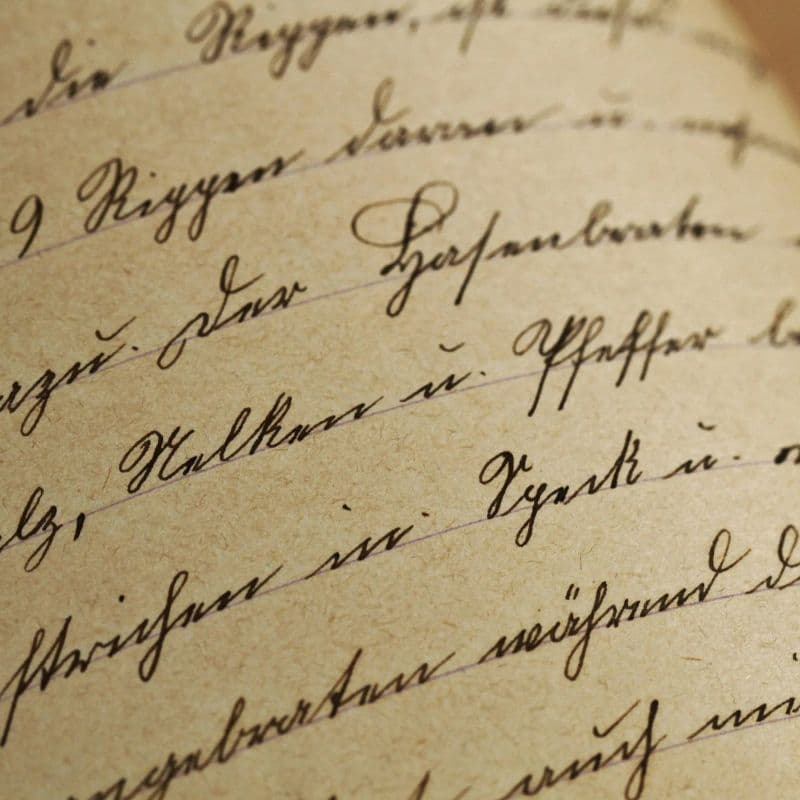 die Rippen, ist
9 Rippen daran u.
azu. Der Hasenbraten
lz, Nelken u. Pfeffer be
strichen in Speck u.
angebraten während d
auch mi